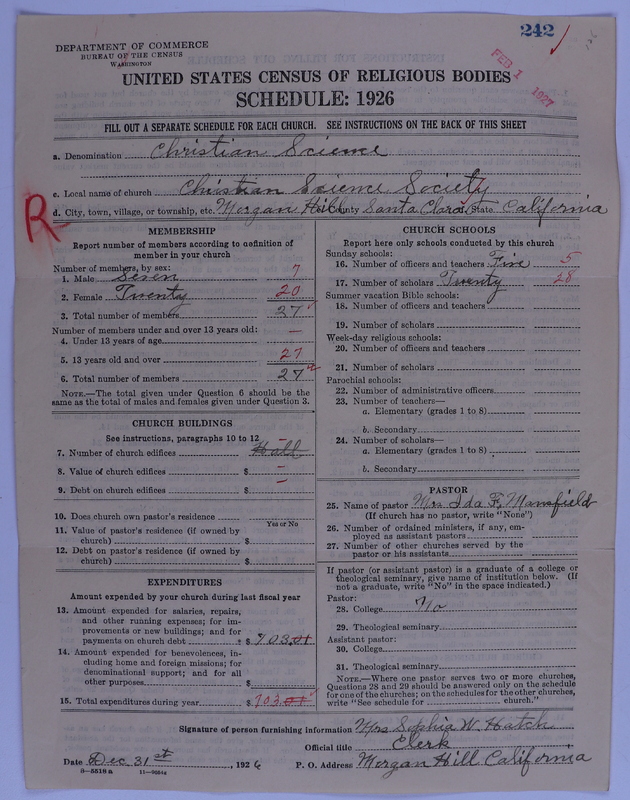 242 ✓
DEPARTMENT OF COMMERCE
BUREAU OF THE CENSUS
WASHINGTON
FEB 1 1927
UNITED STATES CENSUS OF RELIGIOUS BODIES
SCHEDULE: 1926
FILL OUT A SEPARATE SCHEDULE FOR EACH CHURCH. SEE INSTRUCTIONS ON THE BACK OF THIS SHEET
a. Denomination Christian Science
c. Local name of church Christian Science Society
R
d. City, town, village, or township, etc. Morgan Hill County Santa Clara State California
MEMBERSHIP
Report number of members according to definition of
member in your church
Number of members, by sex:
1. Male Seven 7
2. Female Twenty 20
3. Total number of members 27
Number of members under and over 13 years old:
4. Under 13 years of age —
5. 13 years old and over 27
6. Total number of members 27
NOTE.—The total given under Question 6 should be the
same as the total of males and females given under Question 3.
CHURCH BUILDINGS
See instructions, paragraphs 10 to 12
7. Number of church edifices Hall –
8. Value of church edifices $ –
9. Debt on church edifices $ –
10. Does church own pastor's residence
Yes or No
11. Value of pastor's residence (if owned by
church) $
12. Debt on pastor's residence (if owned by
church) $
EXPENDITURES
Amount expended by your church during last fiscal year
13. Amount expended for salaries, repairs,
and other running expenses; for im-
provements or new buildings; and for
payments on church debt $ 903.01
14. Amount expended for benevolences, in-
cluding home and foreign missions; for
denominational support; and for all
other purposes $
15. Total expenditures during year $ 903.01
CHURCH SCHOOLS
Report here only schools conducted by this church
Sunday schools:
16. Number of officers and teachers Five 5
17. Number of scholars Twenty 28
Summer vacation Bible schools:
18. Number of officers and teachers
19. Number of scholars
Week-day religious schools:
20. Number of officers and teachers
21. Number of scholars
Parochial schools:
22. Number of administrative officers
23. Number of teachers—
a. Elementary (grades 1 to 8)
b. Secondary
24. Number of scholars—
a. Elementary (grades 1 to 8)
b. Secondary
PASTOR
25. Name of pastor Mrs Ida F. Mansfield
(If church has no pastor, write "None")
26. Number of ordained ministers, if any, em-
ployed as assistant pastors
27. Number of other churches served by the
pastor or his assistants
If pastor (or assistant pastor) is a graduate of a college or
theological seminary, give name of institution below. (If
not a graduate, write "No" in the space indicated.)
Pastor:
28. College No
29. Theological seminary
Assistant pastor:
30. College
31. Theological seminary
NOTE.—Where one pastor serves two or more churches,
Questions 28 and 29 should be answered only on the schedule
for one of the churches; on the schedules for the other churches,
write "See schedule for church."
Signature of person furnishing information Mrs Sophia W. Hatch
Official title Clerk
Date Dec. 31st, 1926 P. O. Address Morgan Hill California
8-5518a 11-9684a